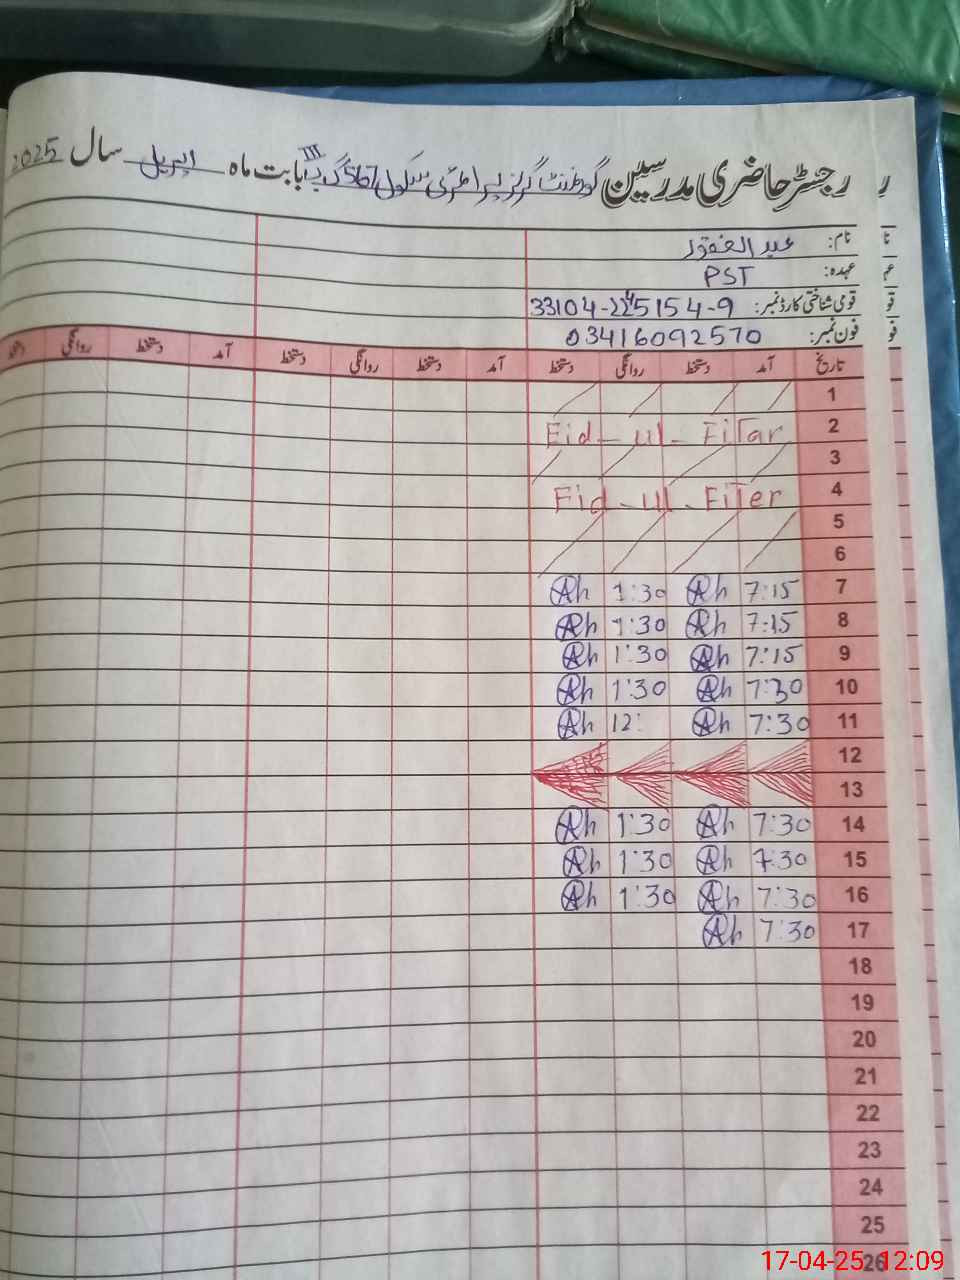 رجسٹر حاضری مدرسین گورنمنٹ گرلز پرائمری سکول 567 گ ب III بابت ماہ اپریل سال 2025
نام: عبدالغفور
عہدہ: PST
قومی شناختی کارڈ نمبر:
فون نمبر: 03416092570
تاریخ آمد دستخط روانگی دستخط آمد دستخط روانگی دستخط آمد دستخط روانگی
1
2 Eid-ul-FiTar
3
4 Eid-ul-FiTer
5
6
7 7:15 Ah 1:30 Ah
8 7:15 Ah 1:30 Ah
9 7:15 Ah 1:30 Ah
10 7:30 Ah 1:30 Ah
11 7:30 Ah 12: Ah
12
13
14 7:30 Ah 1:30 Ah
15 7:30 Ah 1:30 Ah
16 7:30 Ah 1:30 Ah
17 7:30 Ah
18
19
20
21
22
23
24
25
26
17-04-25 12:09